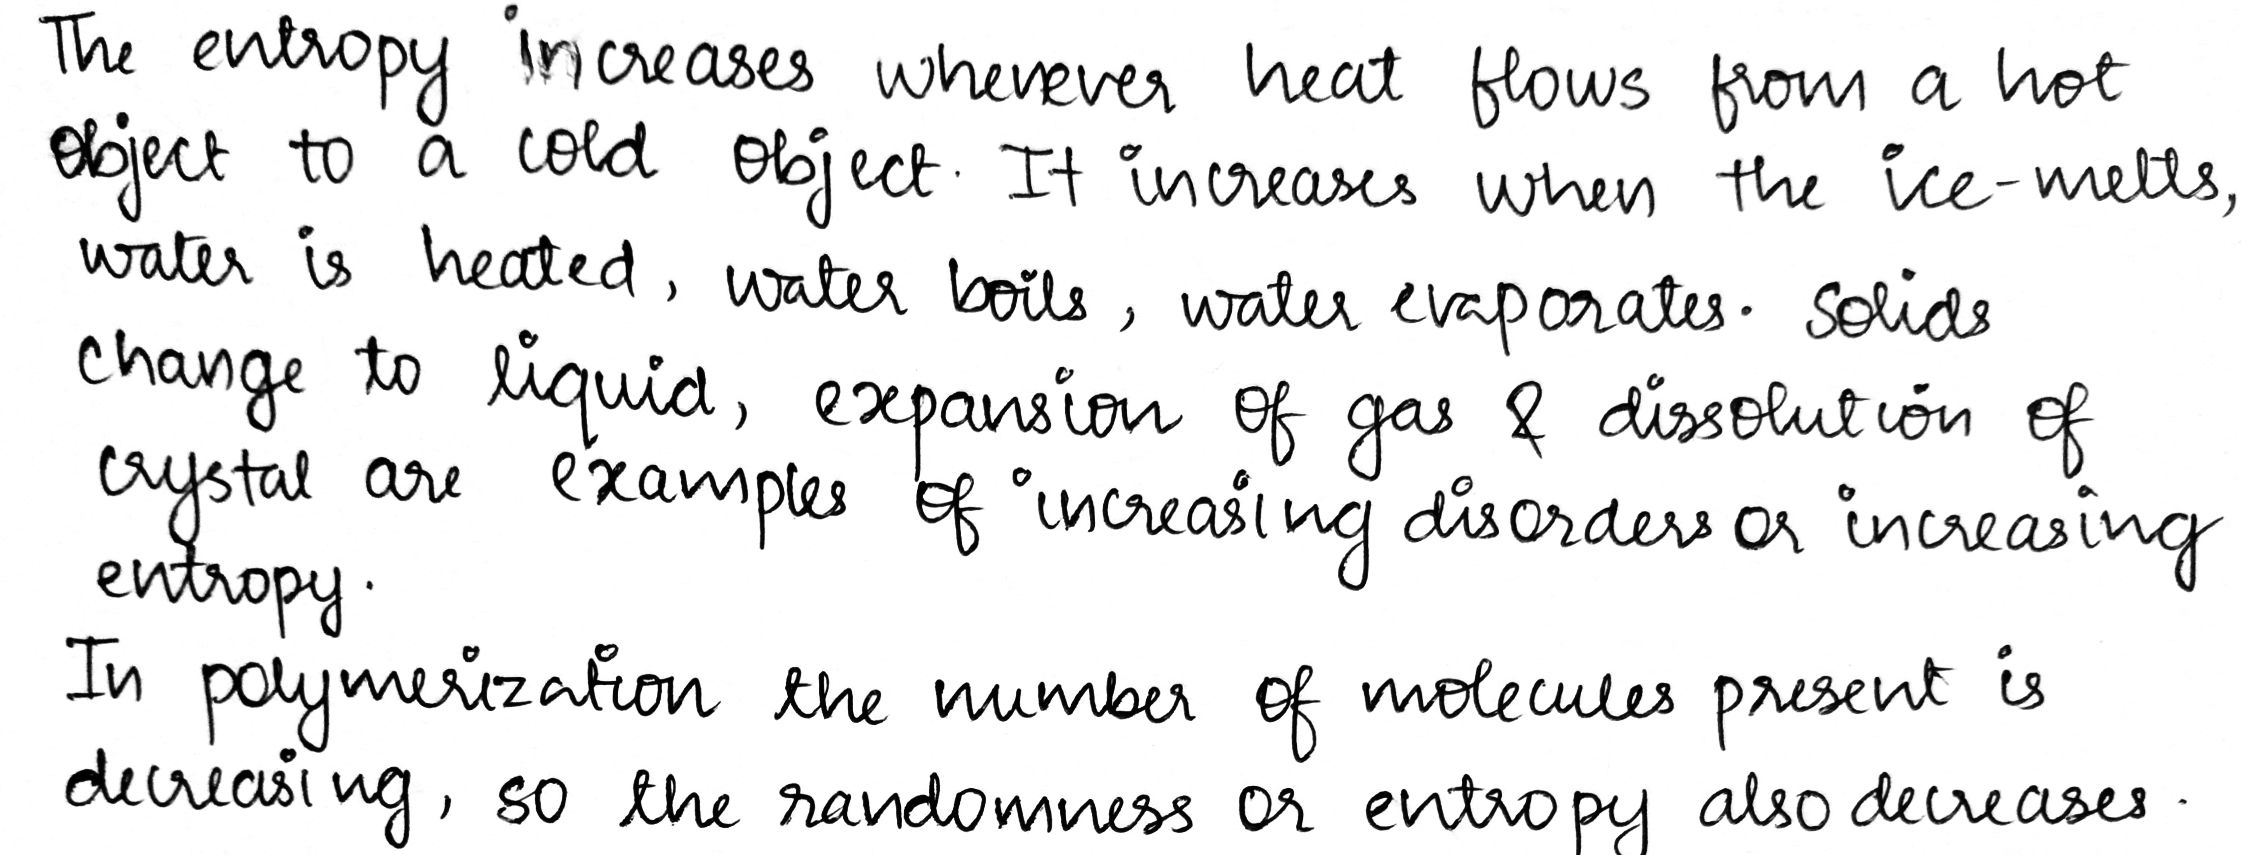 The entropy increases whenever heat flows from a hot
object to a cold object. It increases when the ice-melts,
water is heated, water boils, water evaporates. Solids
change to liquid, expansion of gas & dissolution of
crystal are examples of increasing disorders or increasing
entropy.
In polymerization the number of molecules present is
decreasing, so the randomness or entropy also decreases.